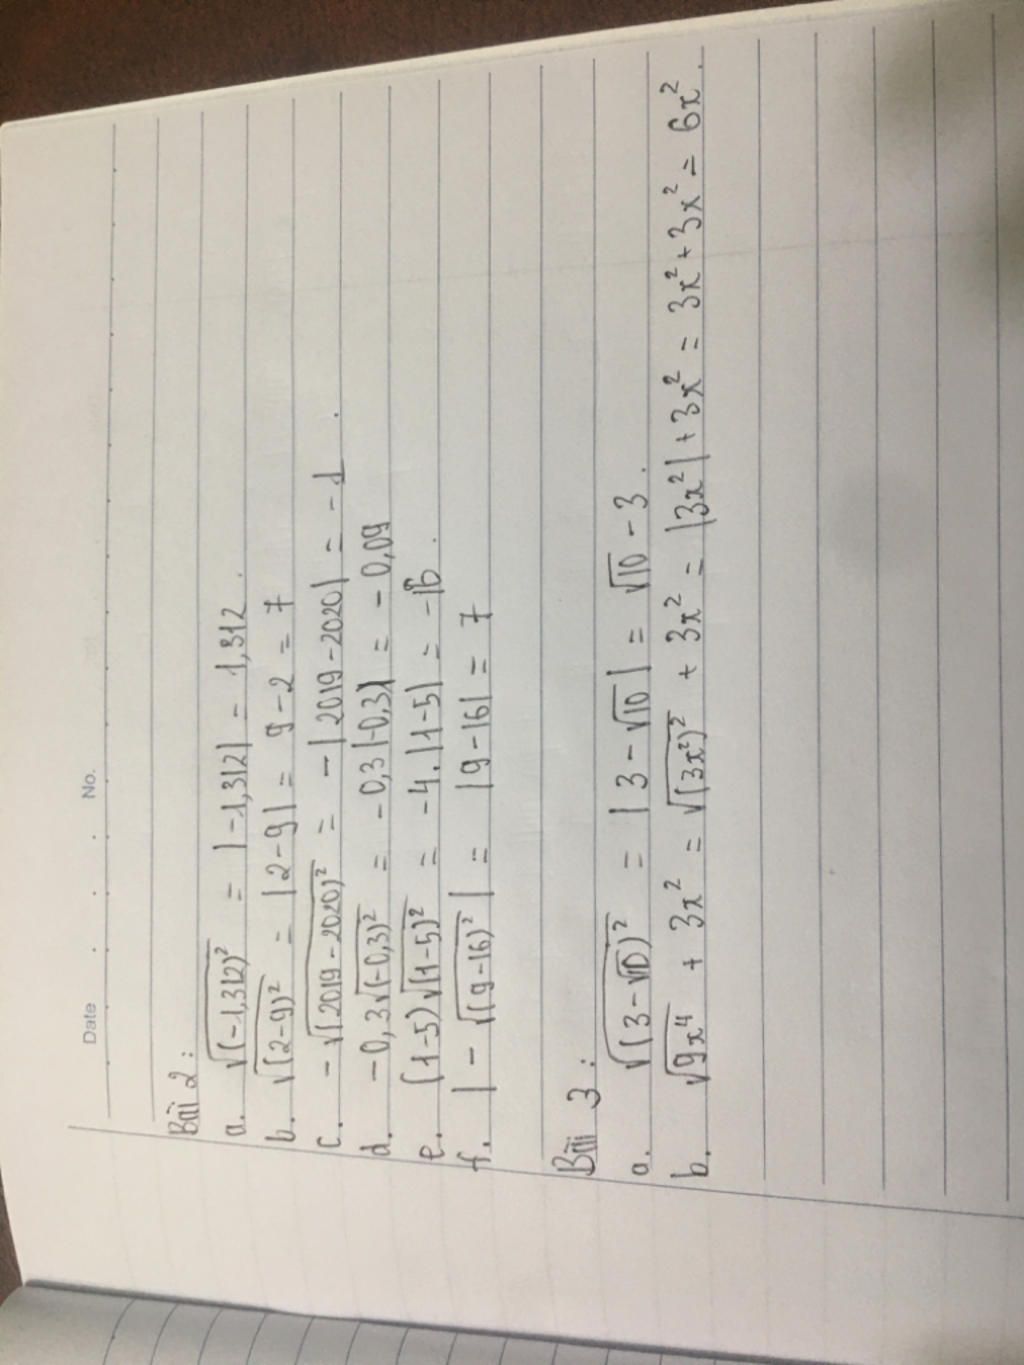 Date No.
Bài 2:
a. √(-1,312)² = |-1,312| = 1,312.
b. √(2-9)² = |2-9| = 9-2 = 7
c. -√(2019-2020)² = -|2019-2020| = -1.
d. -0,3√(-0,3)² = -0,3|-0,3| = -0,09
e. (1-5)√(1-5)² = -4.|1-5| = -16.
f. |-√(9-16)²| = |9-16| = 7
Bài 3:
a. √(3-√10)² = |3-√10| = √10-3.
b. √9x⁴ + 3x² = √(3x²)² + 3x² = |3x²| + 3x² = 3x² + 3x² = 6x².